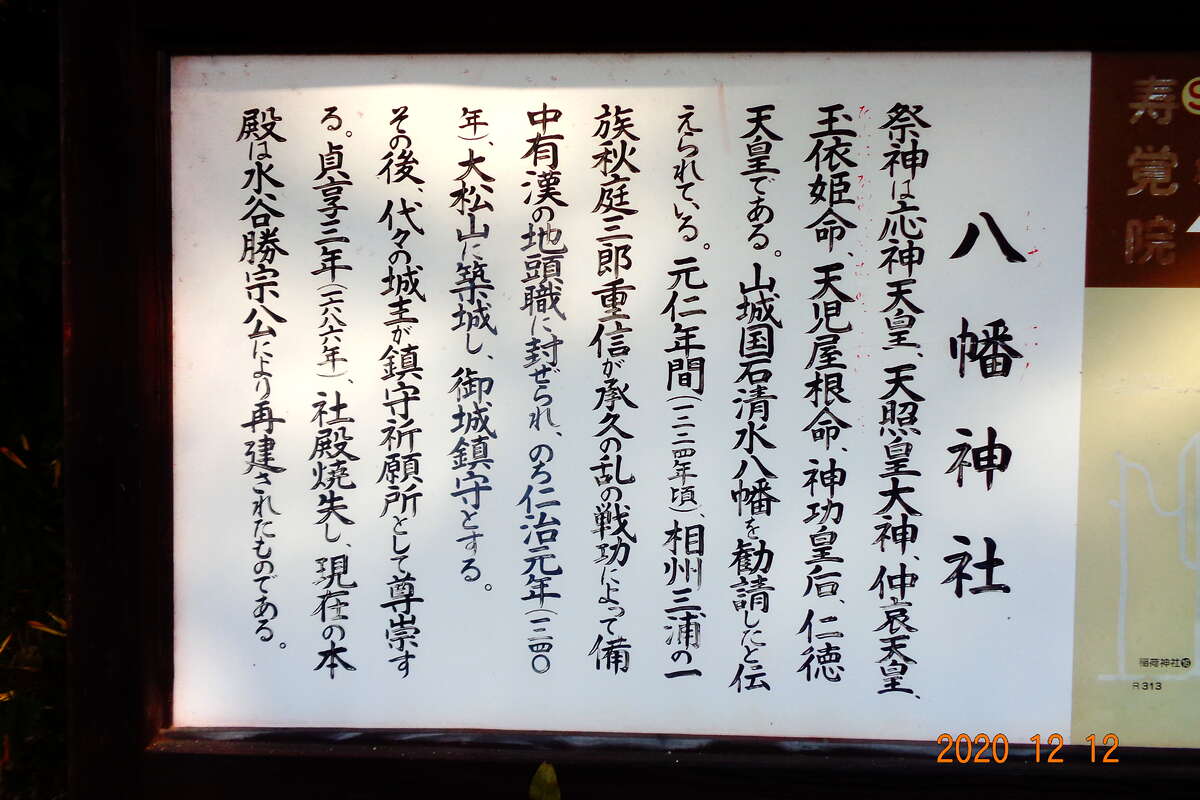 八幡神社
祭神は応神天皇、天照皇大神、仲哀天皇、
玉依姫命、天児屋根命、神功皇后、仁徳
天皇である。山城国石清水八幡を勧請したと伝
えられている。元仁年間(一二二四年頃)、相州三浦の一
族秋庭三郎重信が承久の乱の戦功によって備
中有漢の地頭職に封ぜられ、のち仁治元年(一二四〇
年)、大松山に築城し、御城鎮守とする。
その後、代々の城主が鎮守祈願所として尊崇す
る。貞享三年(一六八六年)、社殿焼失し、現在の本
殿は水谷勝宗公により再建されたものである。
寿覚院
稲荷神社⑯
R313
2020 12 12